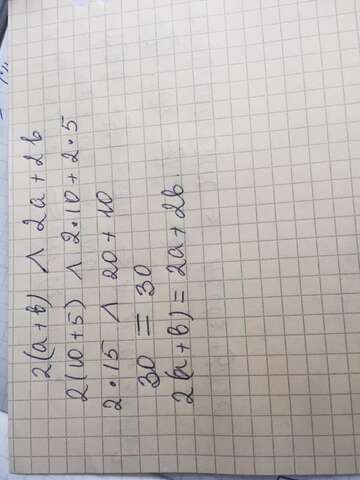 2(a+b) ∧ 2a+2b
2(10+5) ∧ 2·10+2·5
2·15 ∧ 20+10
30 = 30
2(a+b) = 2a+2b.